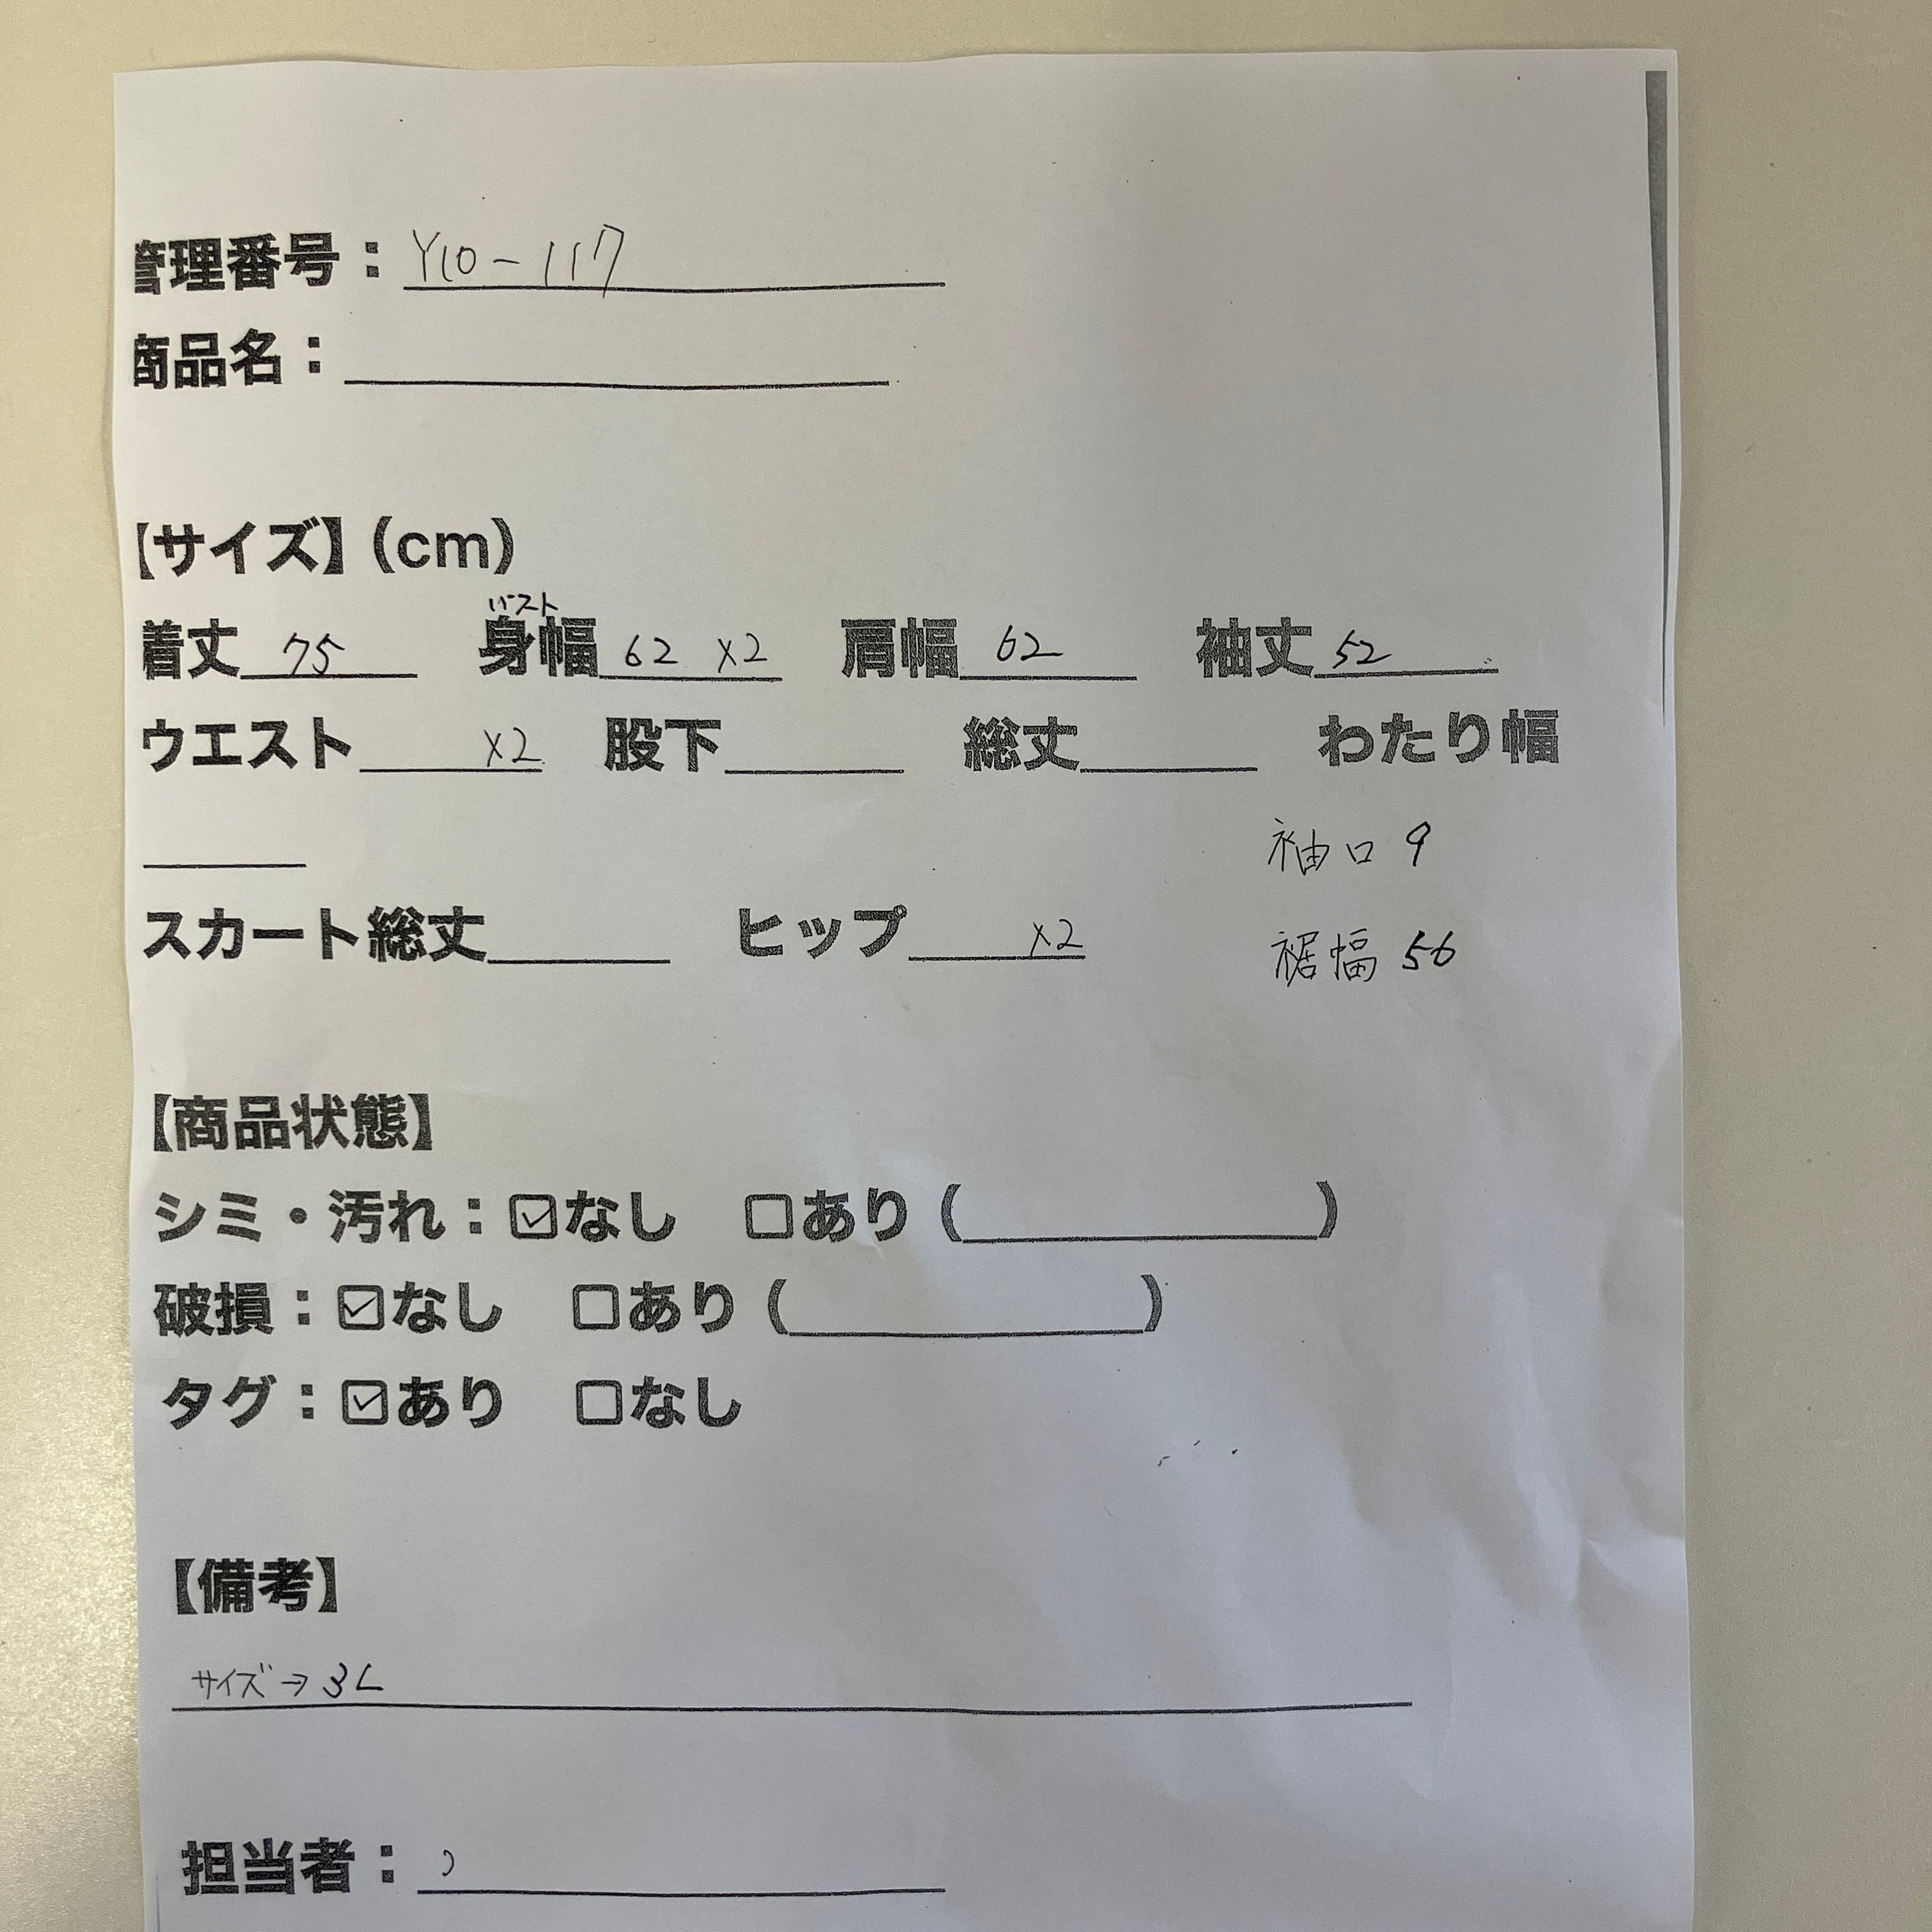 管理番号：Y10-117
商品名：
【サイズ】(cm)
バスト
着丈 75 身幅 62 ×2 肩幅 62 袖丈 52
ウエスト ×2 股下 総丈 わたり幅
袖口 9
スカート総丈 ヒップ ×2
裾幅 56
【商品状態】
シミ・汚れ：☑なし □あり（ ）
破損：☑なし □あり（ ）
タグ：☑あり □なし
【備考】
サイズ→3L
担当者：